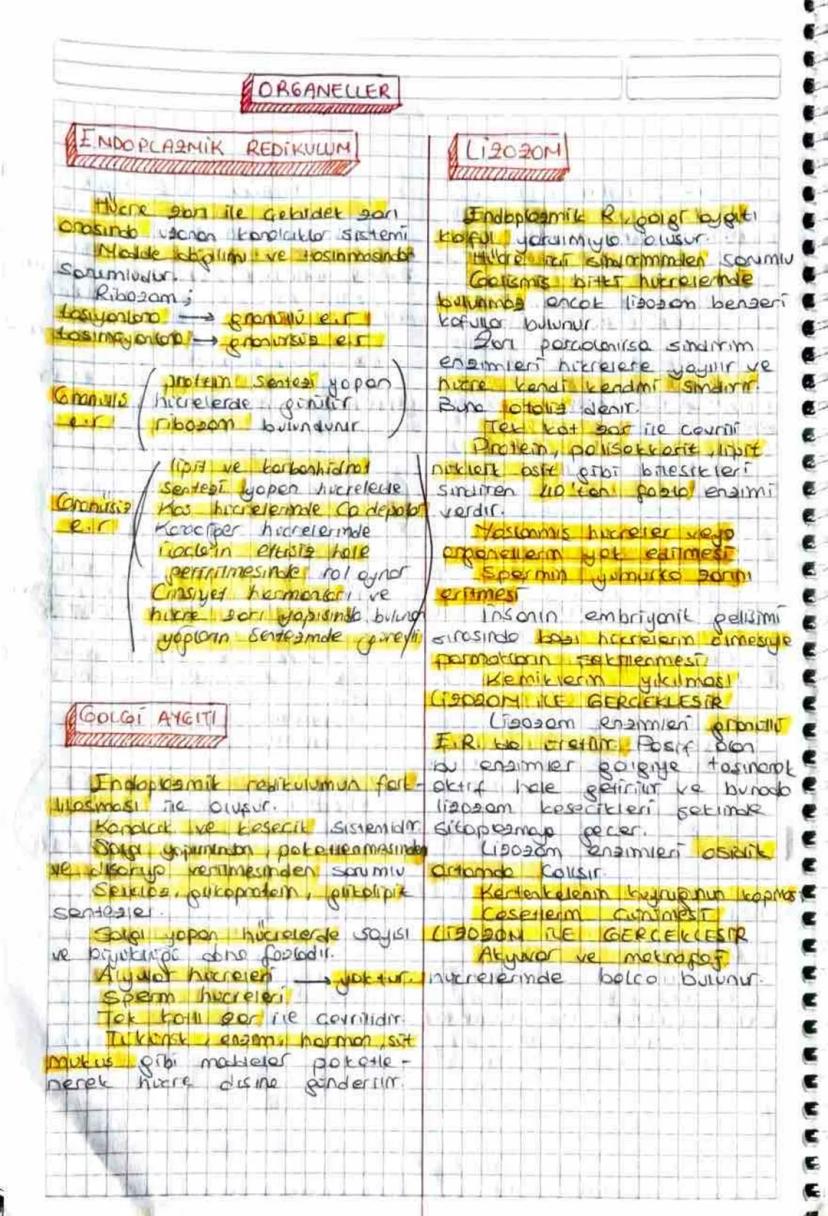 ORGANELLER
ENDOPLAZMİK REDİKULUM
Hücre zarı ile Çekirdek zarı
arasında uzanan kanalcıklar sistemi
Madde depolama ve taşınmasında
sorumludur.
Ribozom;
taşıyanlara → granüllü e.r
taşımayanlara → granürsüz e.r
Granüllü e.r
protein sentezi yapan
hücrelerde görülür
ribozom bulundurur
Granülsüz e.r
lipit ve karbonhidrat
sentezi yapan hücrelerde
Kas hücrelerinde Ca depolar
Karaciğer hücrelerinde
ilaçların etkisiz hale
getirilmesinde rol oynar
Cinsiyet hormonları ve
hücre zarı yapısında bulunan
yapıların sentezinde görevli
GOLGİ AYGITI
Endoplazmik redikulumun fark-
lılaşması ile oluşur.
Kanalcık ve kesecik sistemidir
Salgı yapımından, paketlenmesinden
ve dışarıya verilmesinden sorumlu
Selüloz, glikoprotein, glikolipit
sentezler.
Salgı yapan hücrelerde sayısı
ve büyüklüğü daha fazladır.
Alyuvar hücreleri → yoktur.
Sperm hücreleri
Tek katlı zar ile çevrilidir.
Tükürük, enzim, hormon, süt
mukus gibi maddeler paketle-
nerek hücre dışına gönderilir.
LİZOZOM
Endoplazmik R, golgi aygıtı
koful yarılmıyla oluşur.
Hücre içi sindiriminden sorumlu
Gelişmiş bitki hücrelerinde
bulunmaz ancak lizozom benzeri
kofullar bulunur.
Zarı parçalanırsa sindirim
enzimleri hücrelere yayılır ve
hücre kendi kendini sindirir.
Buna otoliz denir.
Tek kat zar ile çevrili
Protein, polisakkarit, lipit
nükleik asit gibi bileşikleri
sindiren 40'tan fazla enzimi
vardır.
Yaşlanmış hücreler veya
organellerin yok edilmesi
Spermin yumurta zarını
eritmesi
İnsanın embriyonik gelişimi
sırasında bazı hücrelerin ölmesiyle
parmakların şekillenmesi
Kemiklerin yıkılması
LİZOZOM İLE GERÇEKLEŞİR
Lizozom enzimleri granüllü
E.R. de üretilir. Pasif olan
bu enzimler golgiye taşınarak
aktif hale getirilir ve burada
lizozom kesecikleri şeklinde
sitoplazmaya geçer.
Lizozom enzimleri asidik
ortamda çalışır.
Kertenkelenin kuyruğunun kopması
Cesetlerin çürümesi
LİZOZOM İLE GERÇEKLEŞİR
Akyuvar ve makrofaj
hücrelerinde bolca bulunur.